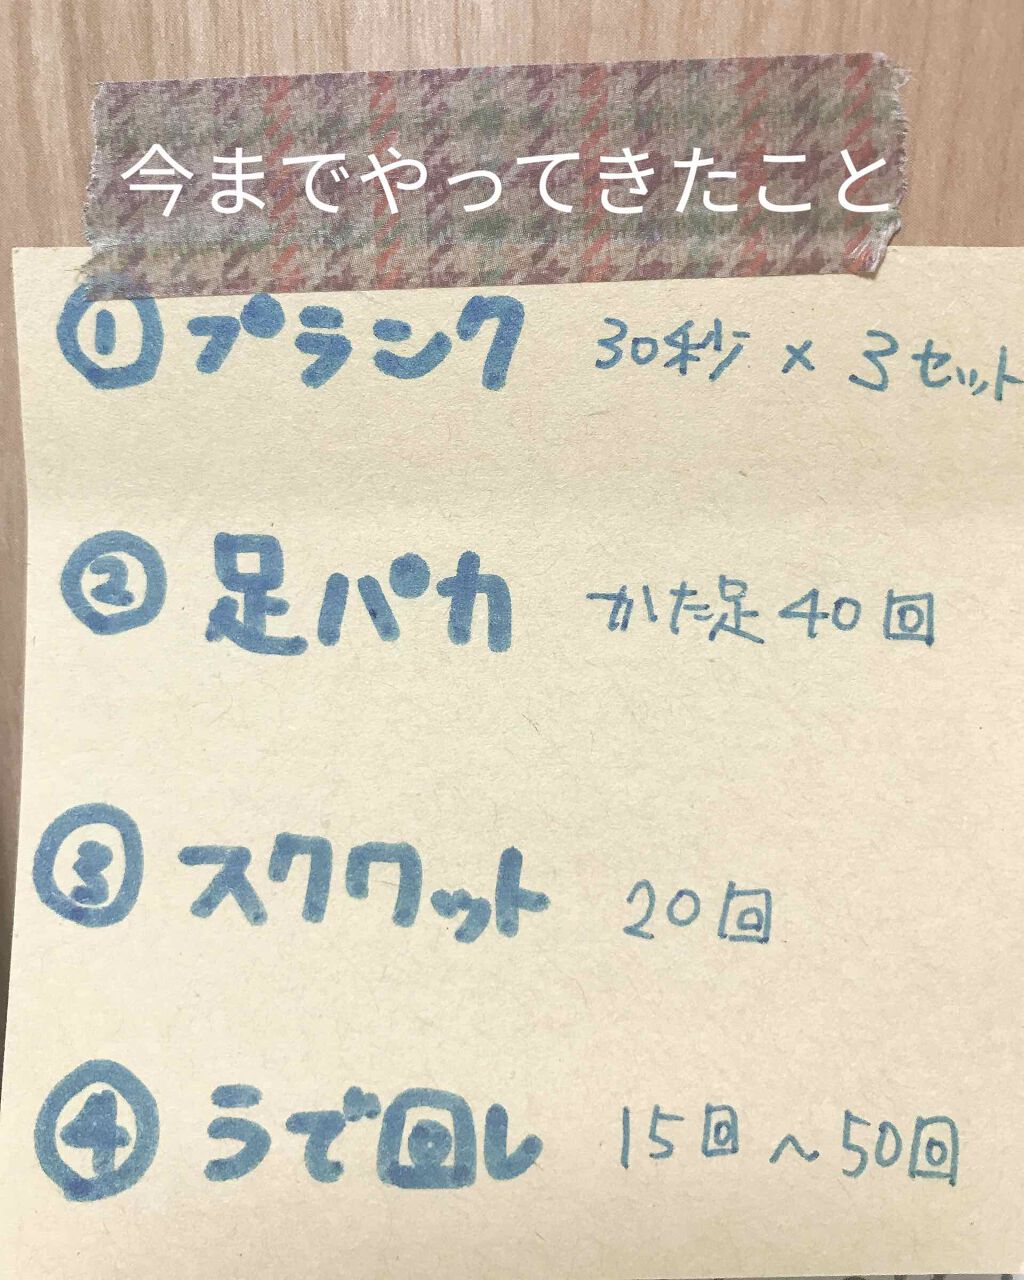 今までやってきたこと
① プランク 30秒 × 3セット
② 足パカ かた足40回
③ スクワット 20回
④ うで回し 15回～50回